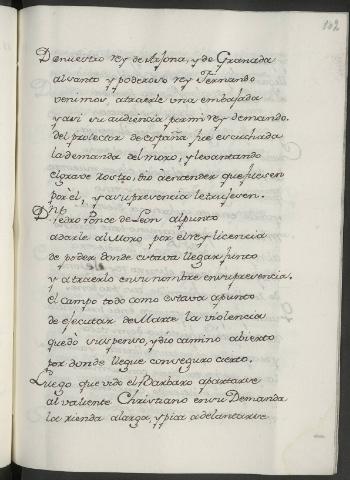 102
De nuestro rey de Arjona, y de Granada
al santo y poderoso rey Fernando
venimos, atraerle una embajada
y asi su audiencia por mi rey demando.
del protector de españa fue escuchada
la demanda del moro, y levantando
el grave Rostro, dio à entender que fuesen
por èl, y a su presencia le trujesen.
Dn Pedro Ponce de Leon al punto
a darle al Moro por el rey licencia
de poder donde estava llegar junto
y atraerlo en su nombre en su presencia.
el campo todo como estava apunto
de ejecutar de Marte la violencia
quedò suspenso, y dio camino abierto
por donde llegue con seguro cierto.
Luego que vido el Barbaro apartarse
al valiente Christiano en su Demanda
la rienda alarga, y picar adelantarse